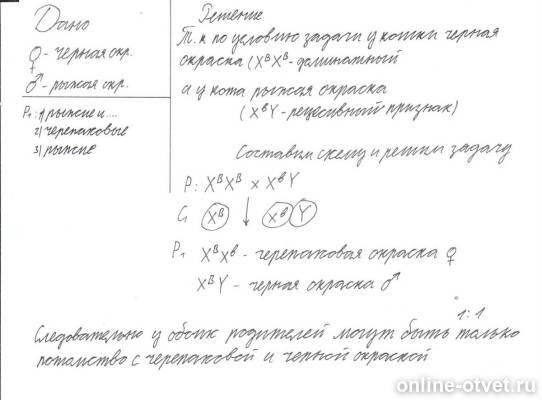 Дано
♀ - черная окр.
♂ - рыжая окр.
P₁: 1) рыжие и....
2) черепаховые
3) рыжие
Решение
Т.к по условию задачи у кошки черная
окраска (XᴮXᴮ - доминатный
а у кота рыжая окраска
(XᵇY - рецесивный признак)
Составим схему и решим задачу
P: XᴮXᴮ x XᵇY
G Xᴮ ↓ Xᵇ Y
P₁ XᴮXᵇ - черепаховая окраска ♀
XᴮY - черная окраска ♂
1:1
Следовательно у обоих родителей могут быть только
потомство с черепаховой и черной окраской
online-otvet.ru